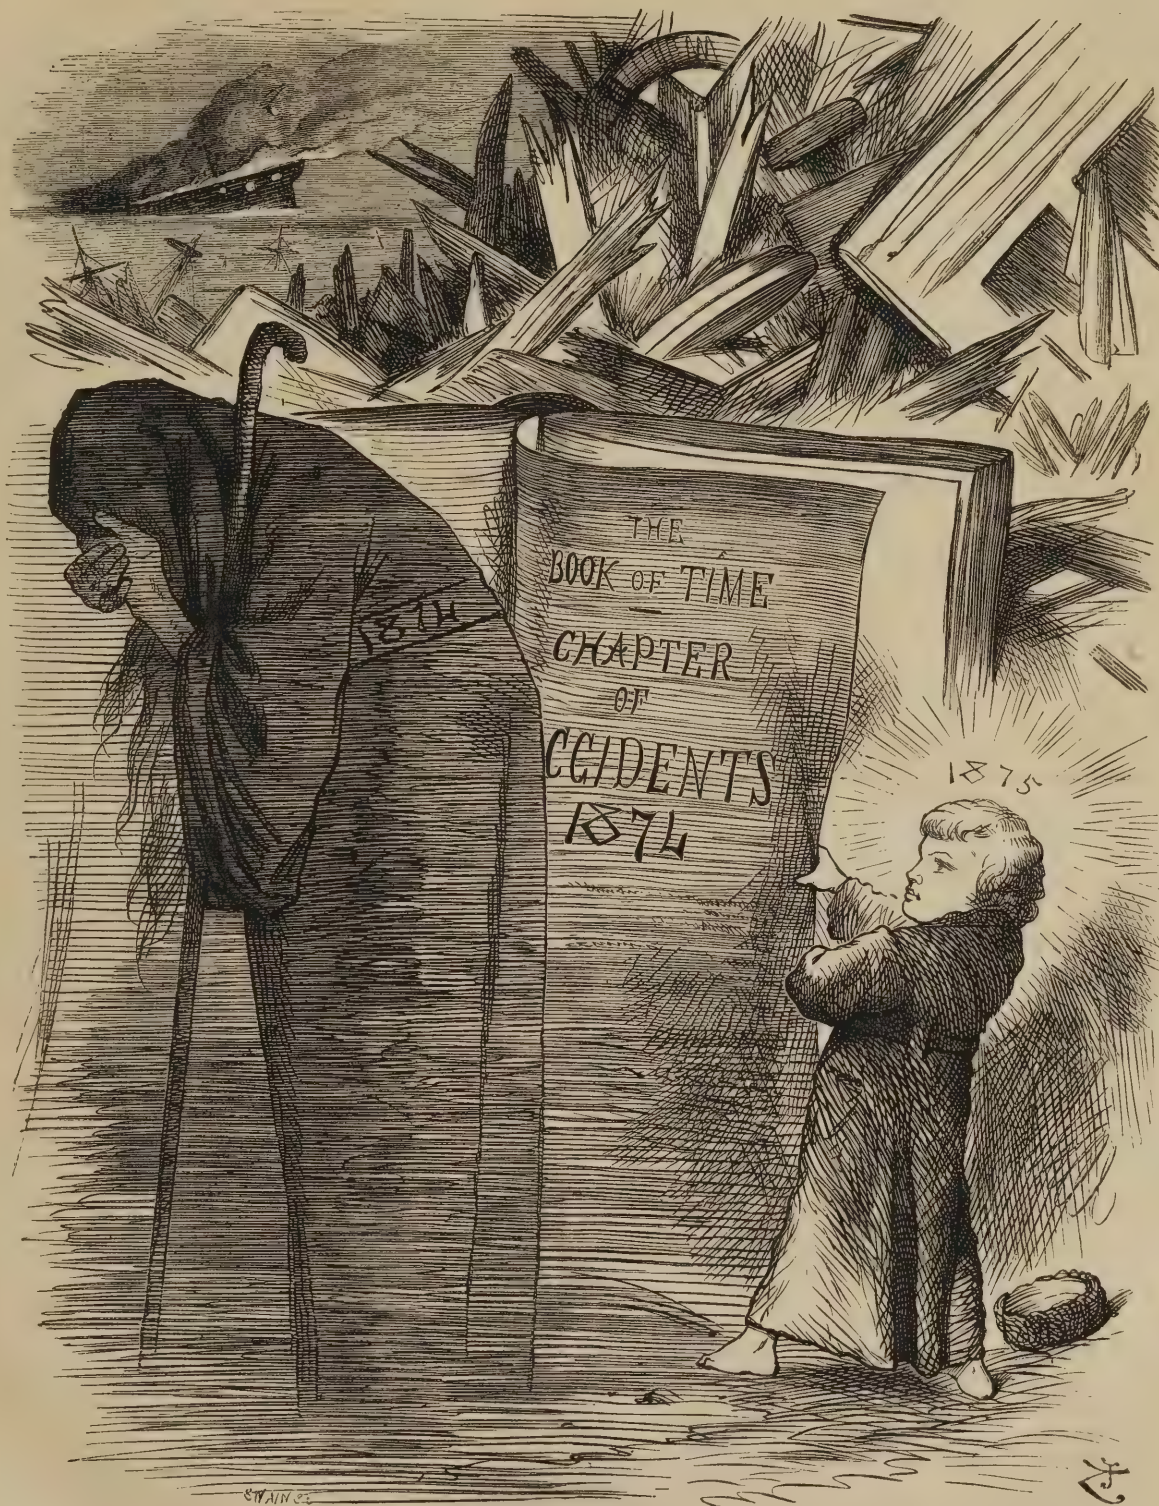 1874
THE
BOOK OF TIME
CHAPTER
OF
CCIDENTS
1874
1875
SWAIN SC